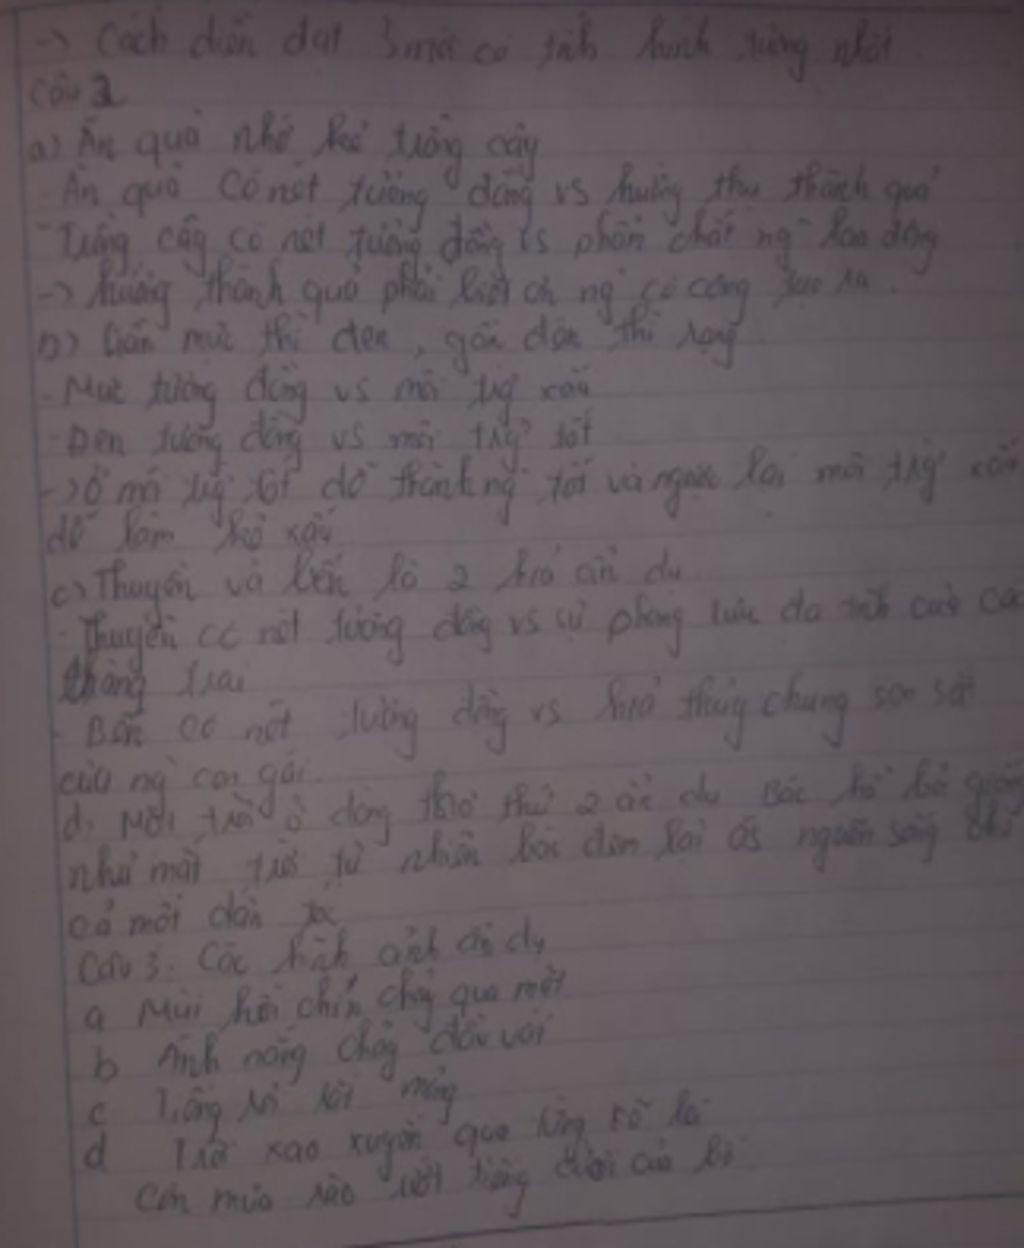 -> Cách diễn đạt 3 mới có tính hình tượng nhất.
Câu 2
a) Ăn quả nhớ kẻ trồng cây
- Ăn quả có nét tương đồng vs hưởng thụ thành quả
- Trồng cây có nét tương đồng vs phẩm chất ng lao động
-> hưởng thành quả phải biết ơn ng có công tạo ra.
b) Gần mực thì đen, gần đèn thì rạng.
- Mực tương đồng vs môi trg xấu
- Đèn tương đồng vs môi trg tốt
-> Ở môi trg tốt dễ thành ng tốt và ngược lại môi trg xấu
dễ làm kẻ xấu
c) Thuyền và bến là 2 h/ả ẩn dụ
- Thuyền có nét tương đồng vs sự phong lưu đa tình của các
chàng trai
- Bến có nét tương đồng vs h/ả thủy chung son sắt
của ng con gái.
d. Mặt trời ở dòng thơ thứ 2 ẩn dụ Bác Hồ
như mặt trời tự nhiên Bác đem lại as nguồn sống cho
cả dân tộc
Câu 3: Các hình ảnh ẩn dụ
a Mùi hồi chín chảy qua mặt
b Ánh nắng chảy đầy vai
c Tiếng rơi rất mỏng
d xao xuyến qua từng kẽ lá
Cơn mưa rào ướt tiếng cười của bố